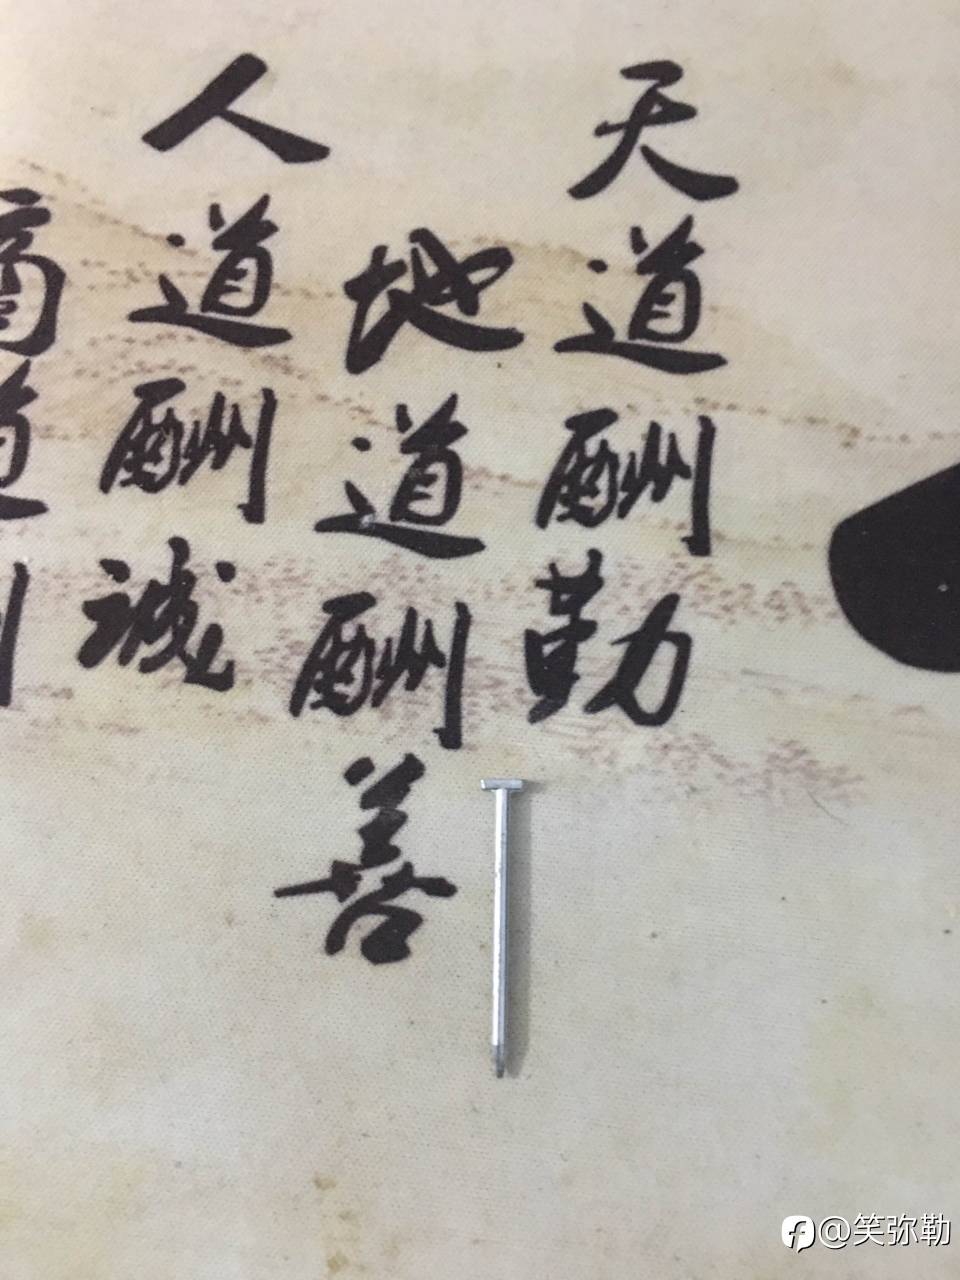 天道酬勤
地道酬善
人道酬诚
商道
@笑弥勒